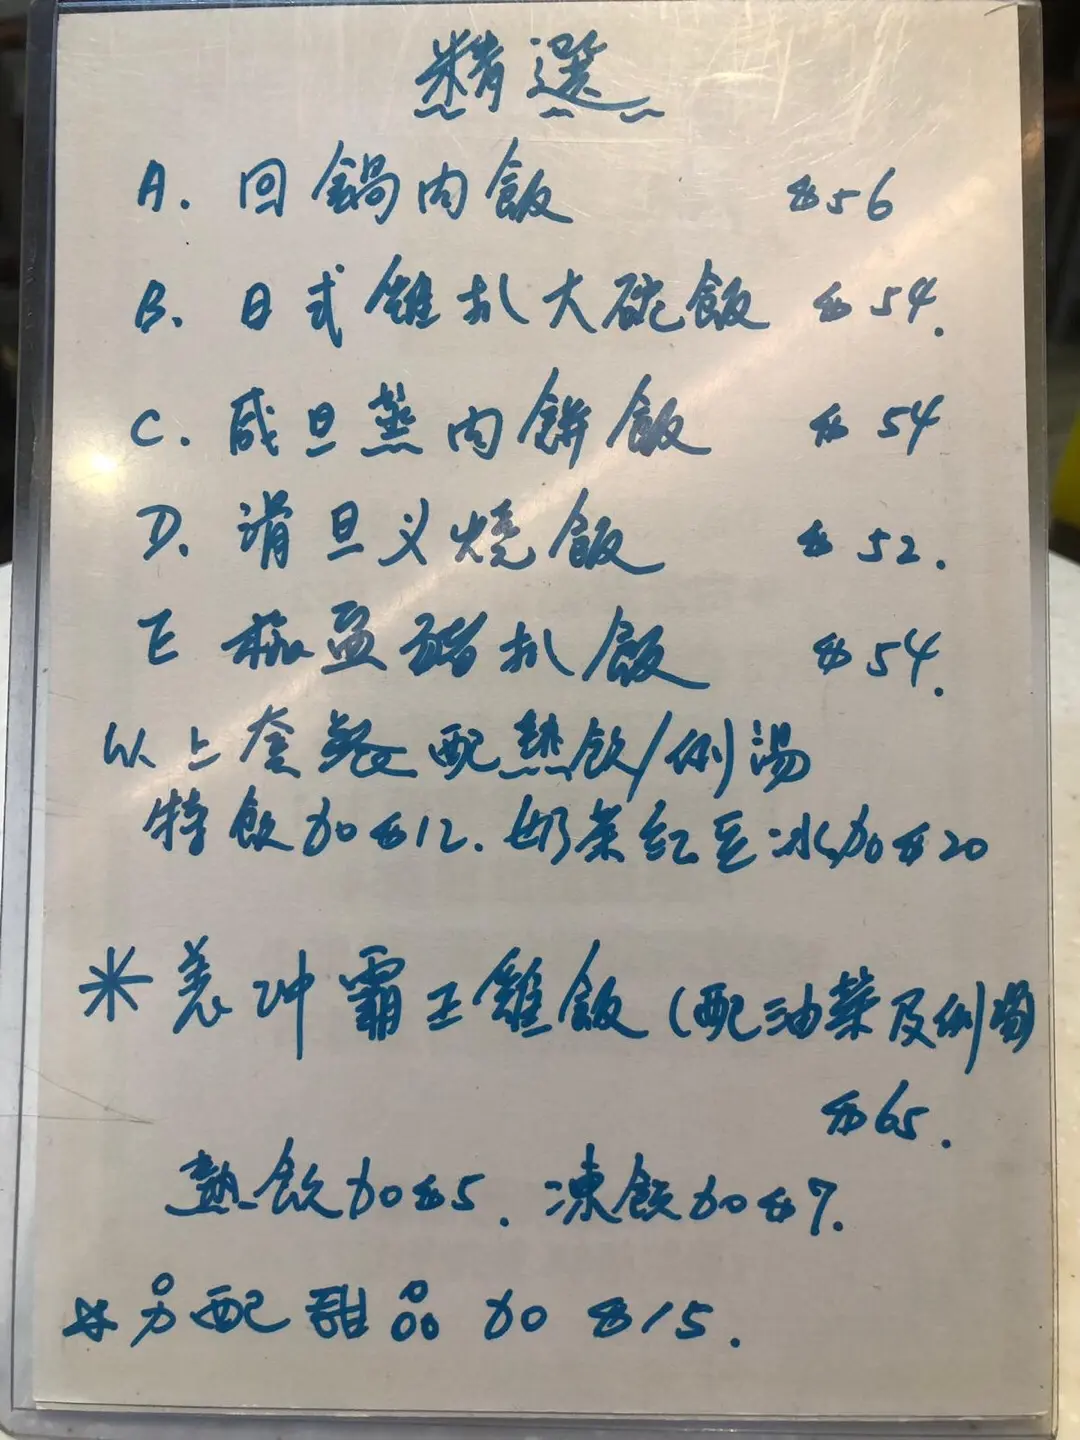 精選
A. 回鍋肉飯 $56
B. 日式雞扒大碗飯 $54.
C. 咸旦蒸肉餅飯 $54
D. 滑旦义燒飯 $52.
E 椒盐豬扒飯 $54.
以上套餐配热飲/例湯
特飲加$12. 奶茶紅豆冰加$20
* 羗冲霸王雞飯 (配油菜及例湯)
$65.
熱飲加$5. 凍飲加$7.
* 另配甜品加 $15.